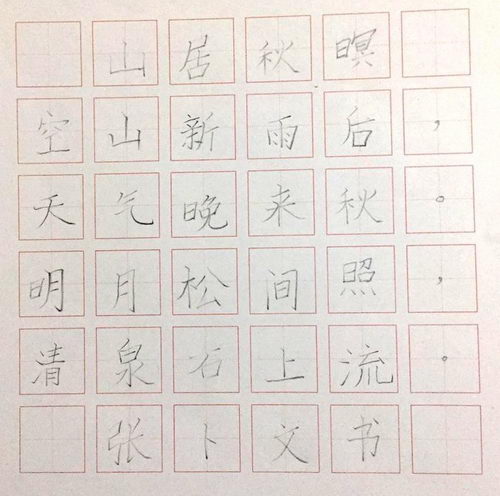 山居秋暝
空山新雨后，
天气晚来秋。
明月松间照，
清泉石上流。
张卜文书